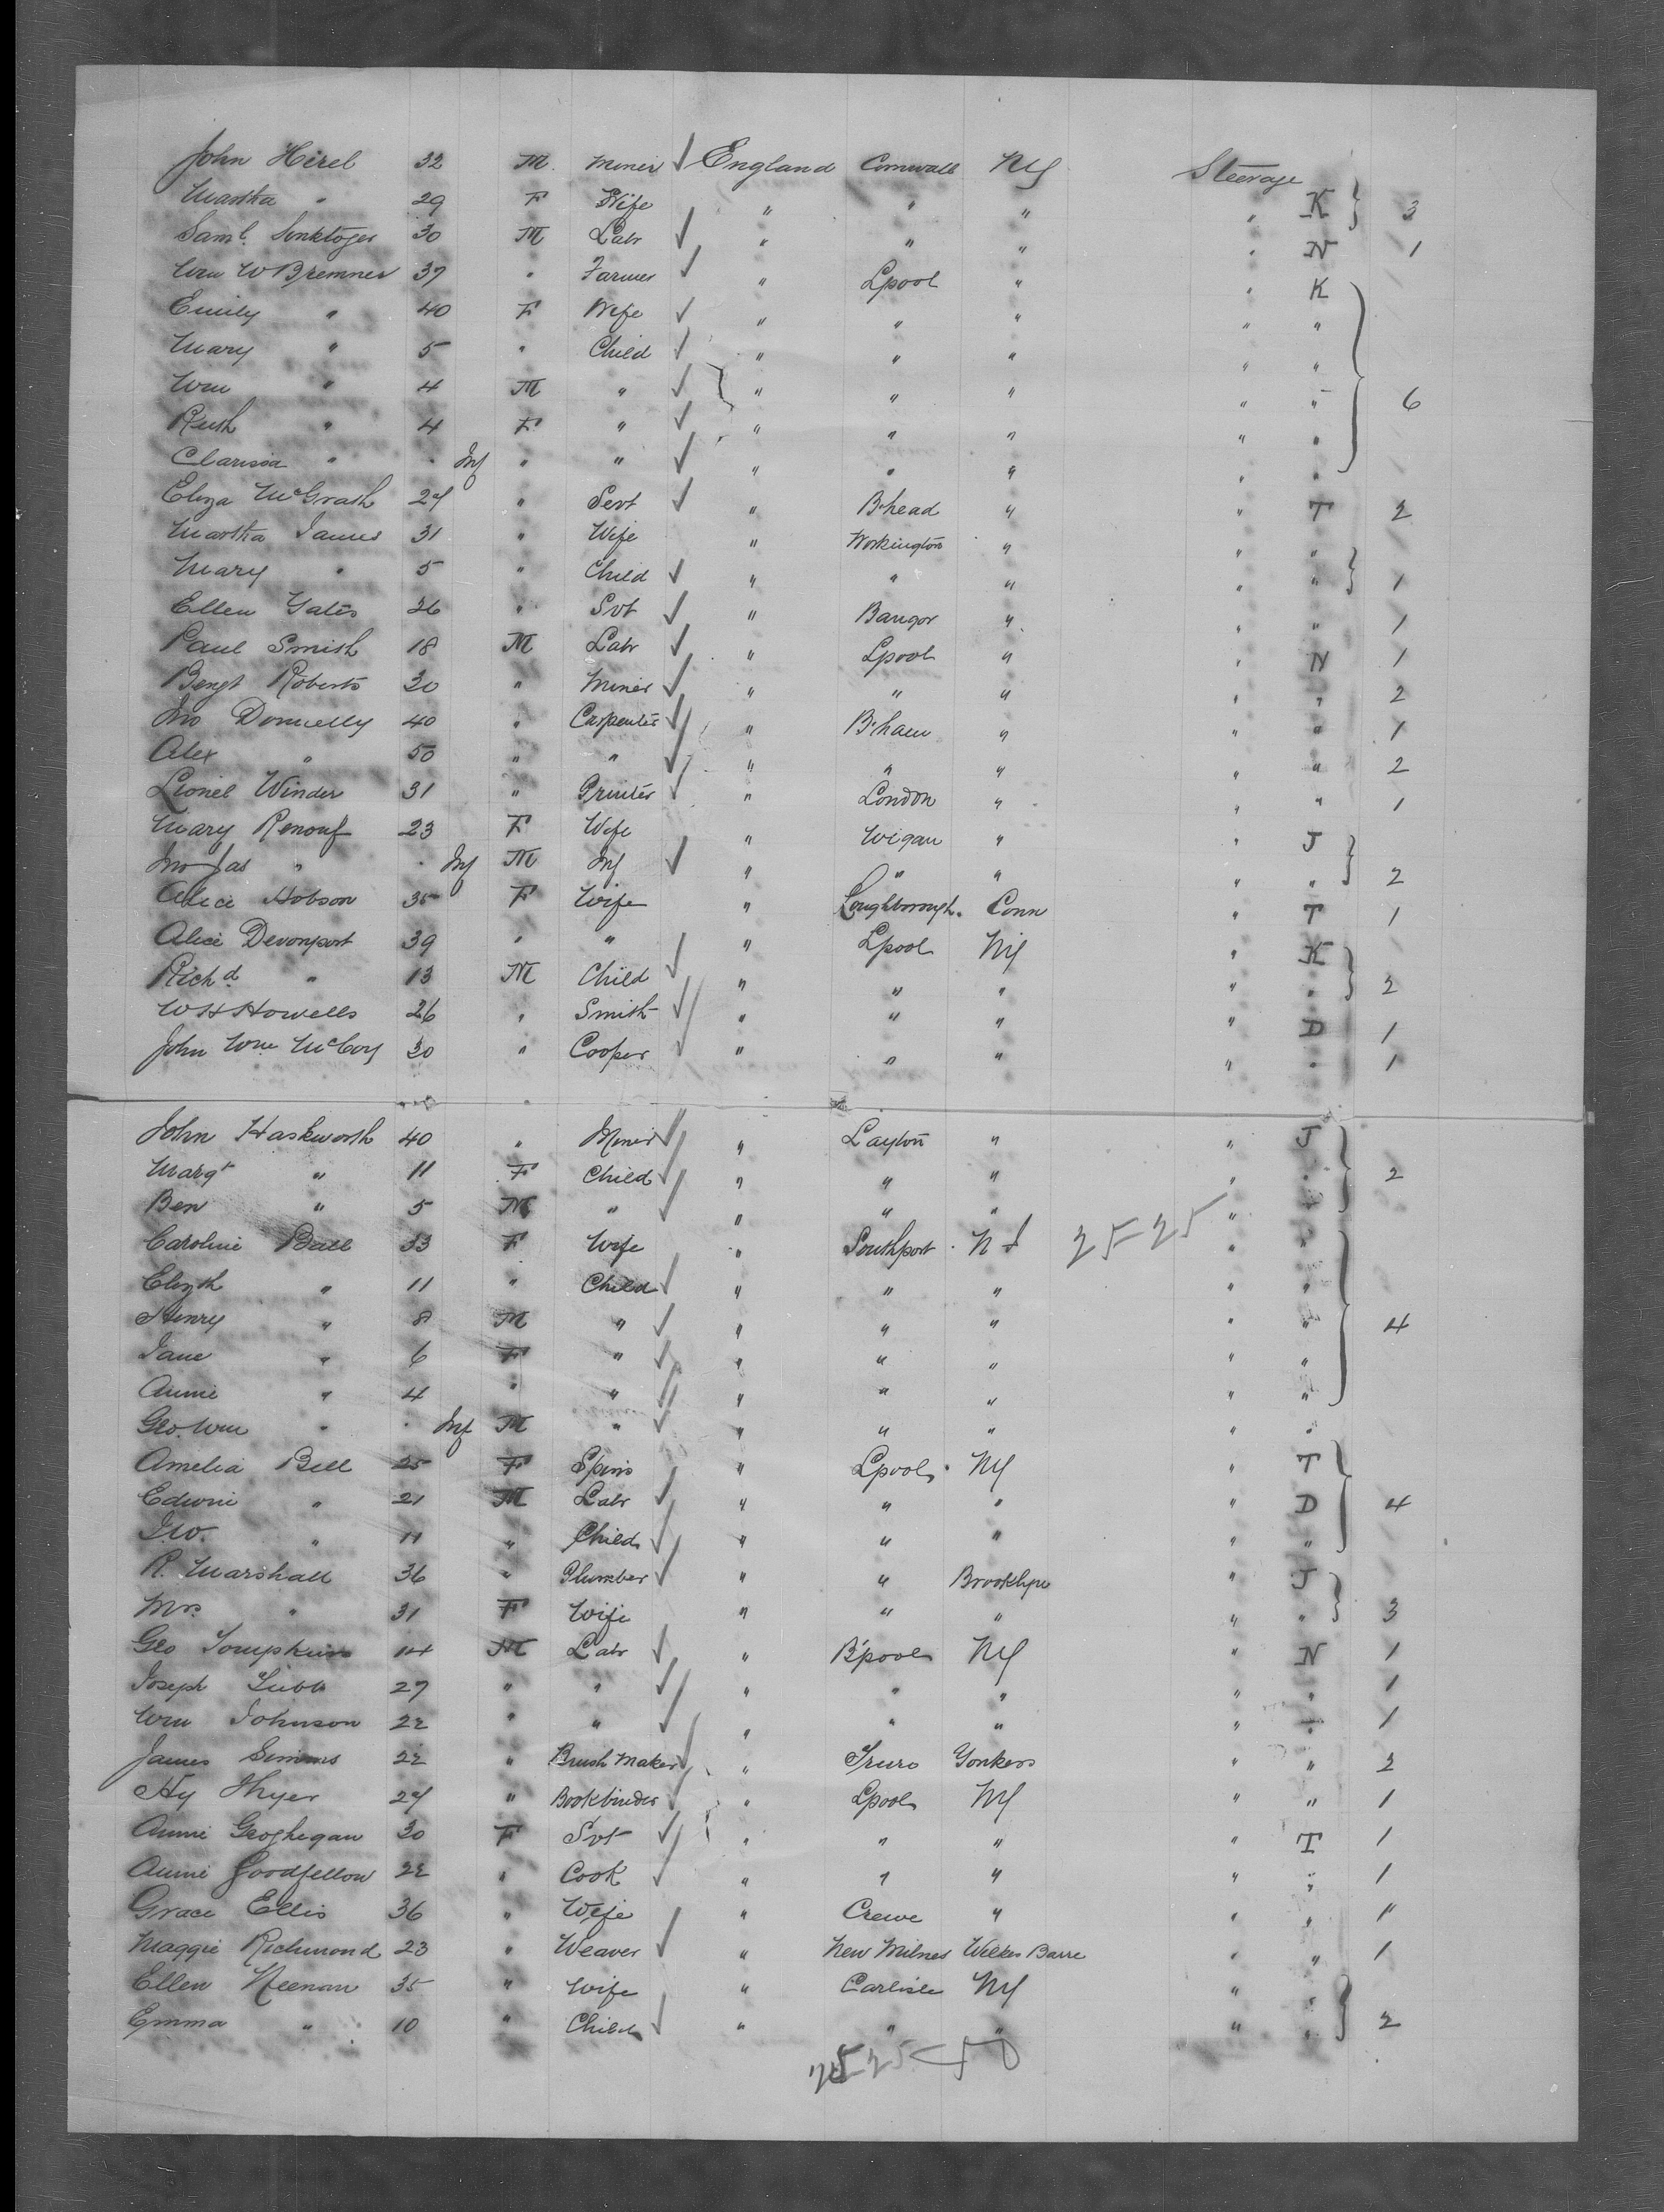 John Hirel 32 M. Miner England Cornwall NY Steerage
Martha " 29 F Wife " " " " K 3
Saml. 30 M Labr " " " " N 1
Wm W Bremner 37 " Farmer " Lpool " " K
Emily " 40 F Wife " " " " "
Mary " 5 " Child " " " " "
Wm " 4 M " " " " " " 6
Ruth " 4 F " " " " " "
Clarissa " . Inf " " " " " " "
Eliza McGrath 24 " Servt " B'head " " T 2
Martha James 31 " Wife " Workington " " "
Mary " 5 " Child " " " " " 1
Ellen Yates 26 " Svt " Bangor " " " 1
Paul Smith 18 M Labr " Lpool " " N 1
Benjt Roberts 30 " Miner " " " " " 2
Jno Donnelly 40 " Carpenter " B'ham " " " 1
Alex " 50 " " " " " " " 2
Lionel Winder 31 " Printer " London " " " 1
Mary Renouf 23 F Wife " Wigan " " J
Jno Jas " . Inf M Inf " " " " " 2
Alice Hobson 35 F Wife " Loughborough. Conn " T 1
Alice Devonport 39 " " " Lpool NY " K
Richd. " 13 M Child " " " " " 2
W H Howells 26 " Smith " " " " D 1
John Wm McCoy 30 " Cooper " " " " " 1
John Haskworth 40 " Miner " Layton " " J
Margt " 11 F Child " " " " " 2
Ben " 5 M " " " " " "
Caroline Ball 33 F Wife " Southport . N J 25-25 " "
Elizth " 11 " Child " " " " "
Henry " 8 M " " " " " " 4
Jane " 6 F " " " " " "
Annie " 4 " " " " " " "
Geo. Wm " . Inf M " " " " " "
Amelia Bell 25 F Spins " Lpool. NY " T
Edwin " 21 M Labr " " " " D 4
J.W. " 11 " Child " " " " "
R. Marshall 36 " Plumber " " Brooklyn " J
Mrs. " 31 F Wife " " " " " 3
Geo Tompkins 14 M Labr " B'pool NY " N 1
Joseph 27 " " " " " " " 1
Wm Johnson 22 " " " " " " " 1
James Simms 22 " Brush Maker " Truro Yonkers " " 2
Hy Thyer 24 " Bookbinder " Lpool NY " " 1
Annie Geoghegan 30 F Svt " " " " T 1
Annie Goodfellow 22 " Cook " " " " " 1
Grace Ellis 36 " Wife " Crewe " " " "
Maggie Richmond 23 " Weaver " New Milnes Wilkes Barre " " 1
Ellen Heenan 35 " Wife " Carlisle NY " "
Emma " 10 " Child " " " " " 2
25 25 50